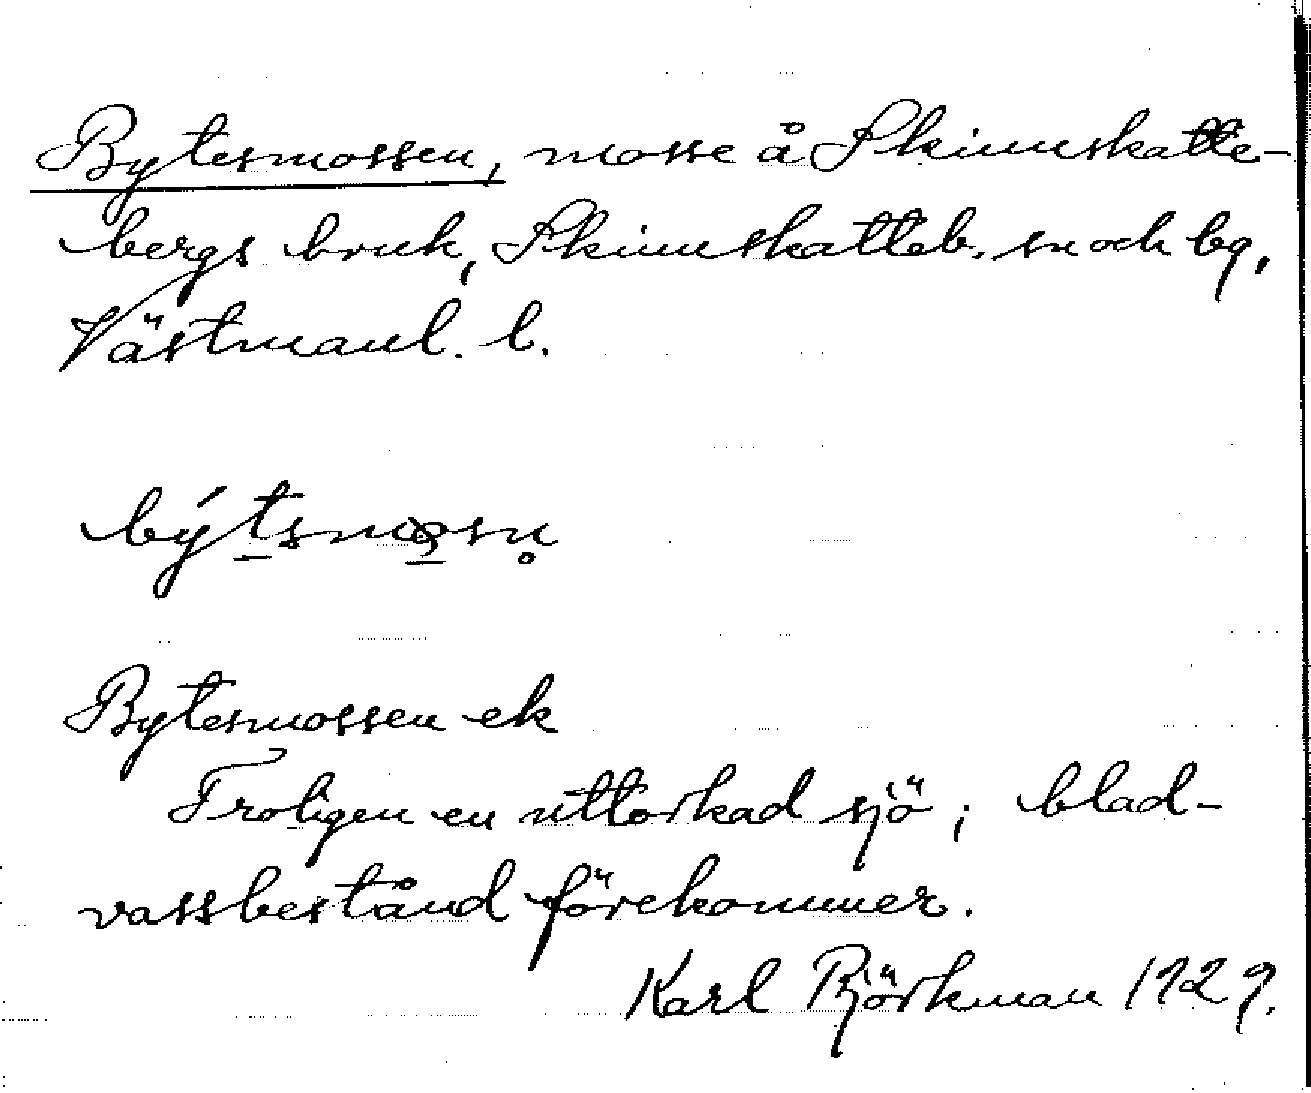 Bytesmossen, mosse å Skinnskatte-
bergs bruk, Skinnskatteb. sn och bg,
Västmanl. l.
Bytesmossen ek
Troligen en uttorkad sjö; blad-
vassbestånd förekommer.
Karl Björkman 1929.